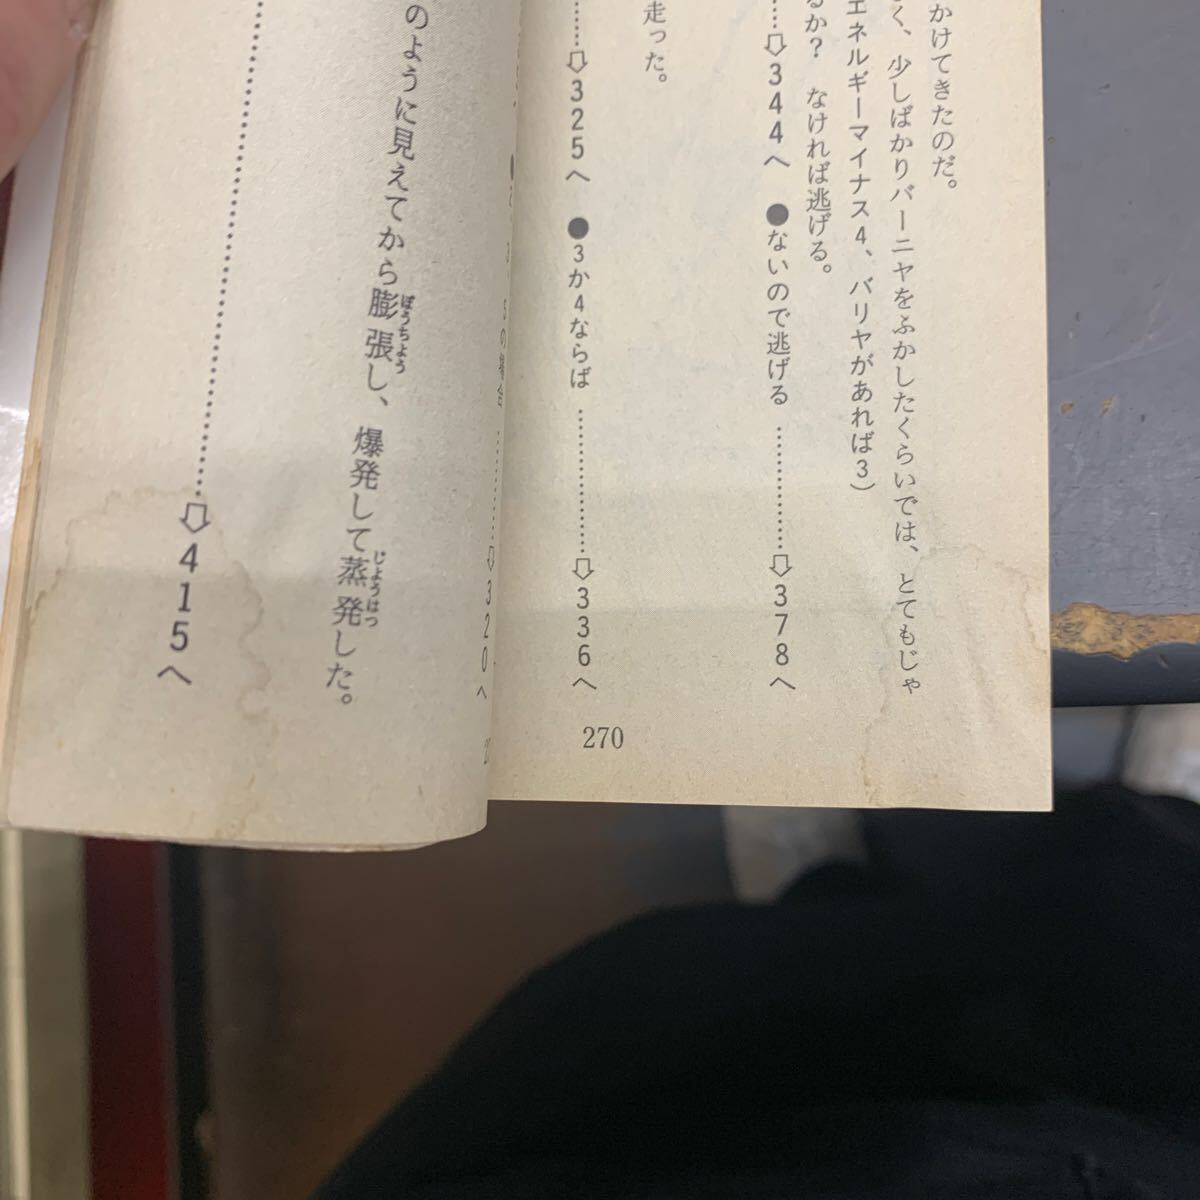 かけてきたのだ。
く、少しばかりバーニヤをふかしたくらいでは、とてもじゃ
エネルギーマイナス4、バリヤがあれば3）
るか？　なければ逃げる。
⇨344へ　●ないので逃げる ⇨378へ
走った。
⇨325へ　●3か4ならば ⇨336へ
270
5の場合 ⇨320へ
のように見えてから膨張し、爆発して蒸発した。
ぼうちよう
じようはつ
⇨415へ